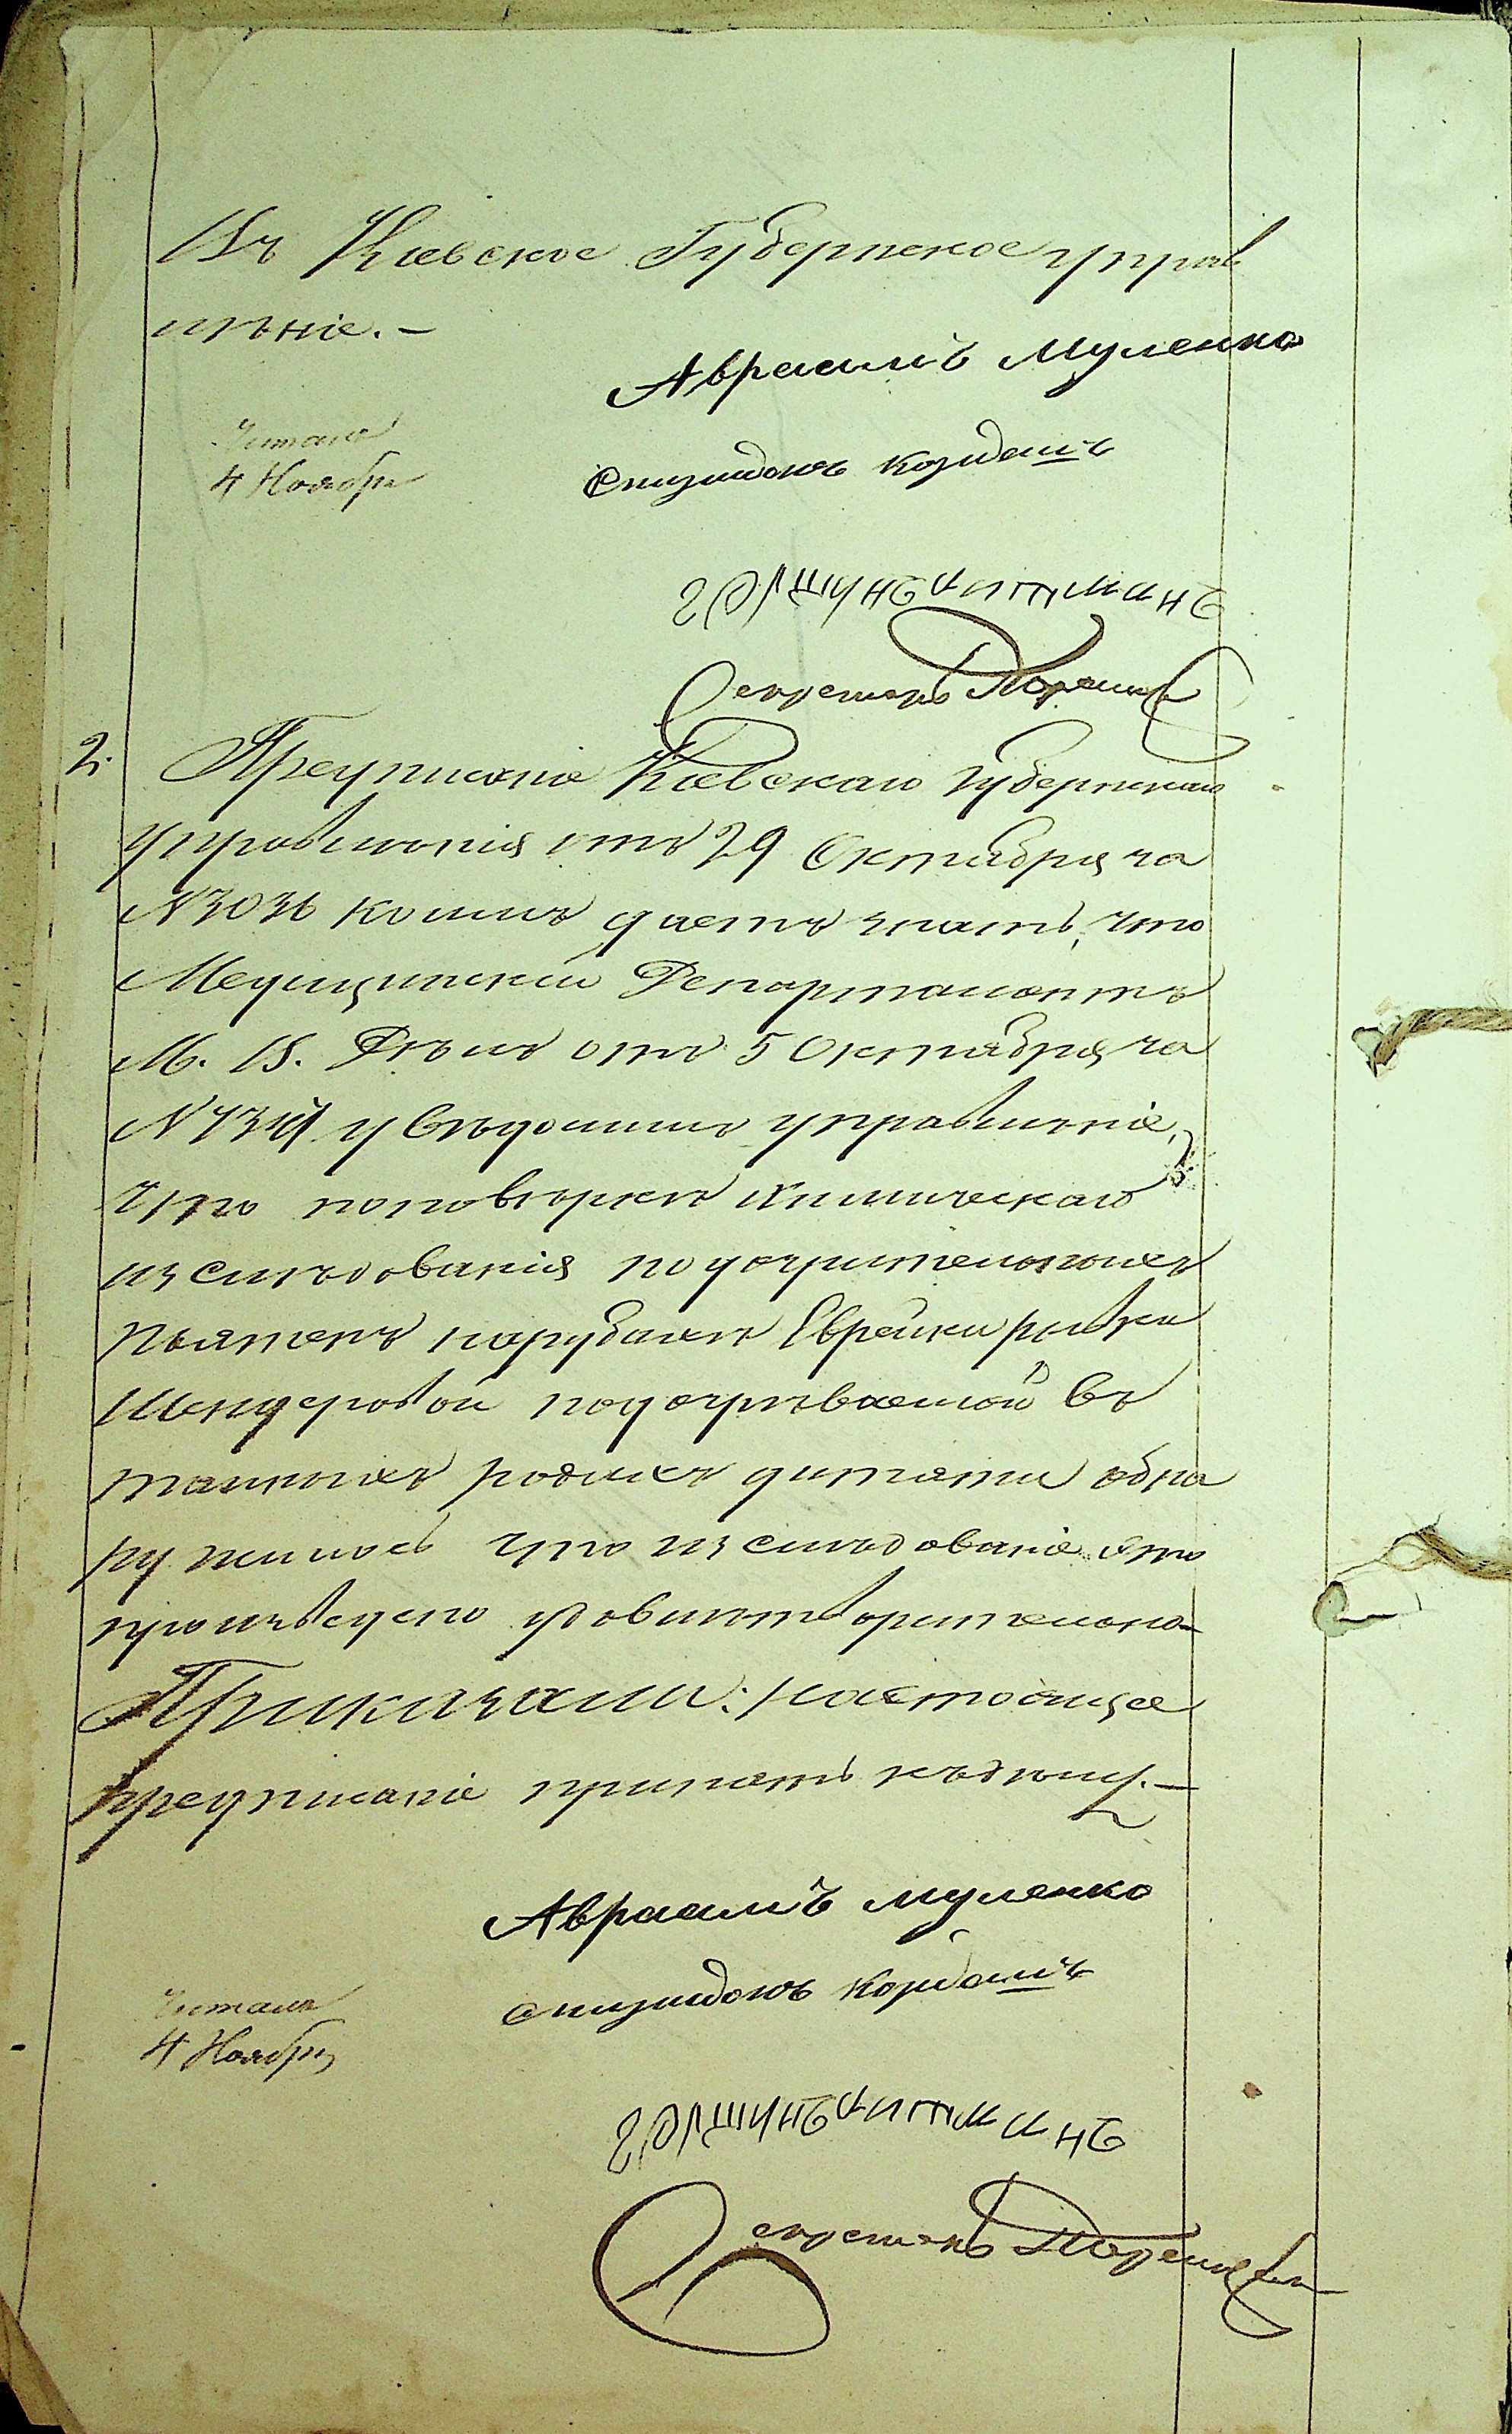 Въ Киевское Губернское управ
лѣніе. –
Авраамъ Муленко
Спиридонъ
Читалъ
4 Ноября
Секретарь
2. Предписаніе Киевскаго Губернскаго
управленія отъ 29 Октября за
N 3036 коимъ даетъ знать, что
Медицинскій Департаментъ
М. В. Дѣлъ отъ 5 Октября за
N увѣдомилъ управленіе,
что поповѣркѣ химическаго
изслѣдованія подозрительныхъ
пятенъ нарубахѣ Еврейки Рывки
Шендеровой подозрѣваемой въ
тайныхъ родахъ дитяти обна
ружилось что изслѣдованіе это
произведено удовлетворительно –
Приказали: настоящее
предписаніе принять къ дѣлу. –
Авраамъ Муленко
Спиридонъ
Читалъ
4 Ноября
Секретарь